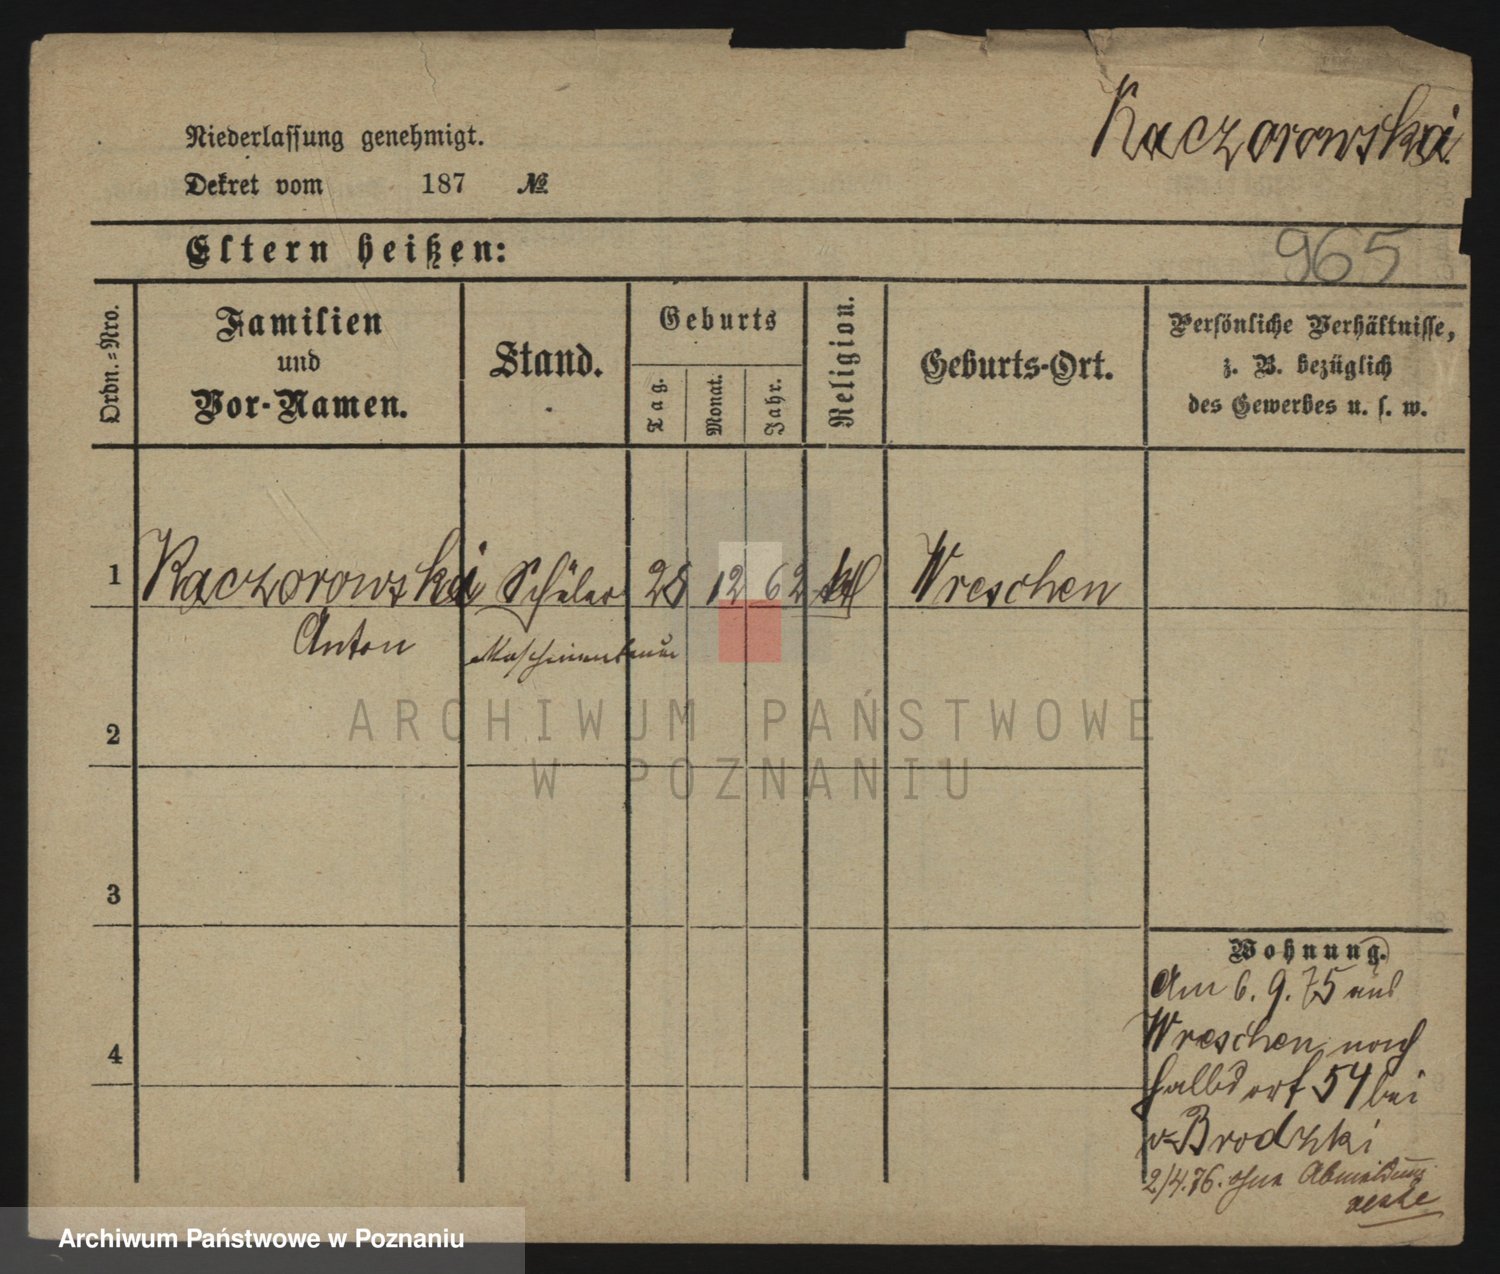 Kaczorowski
Niederlassung genehmigt.
Dekret vom 187 №
Eltern heißen:
965
Ordn.-Nro.
Familien
und
Vor-Namen.
Stand.
Geburts
Tag.
Monat.
Jahr.
Religion.
Geburts-Ort.
Persönliche Verhältnisse,
z. B. bezüglich
des Gewerbes u. s. w.
1 Kaczorowski Schüler 28 12 62 ktl Wreschen
Anton Maschinenbauer
2
3
4
Wohnung.
Am 6. 9. 75 aus
Wreschen nach
Halbdorf 54 bei
v. Brodzki
2/4. 76. ohne Abmeldung
ARCHIWUM PAŃSTWOWE
W POZNANIU
Archiwum Państwowe w Poznaniu